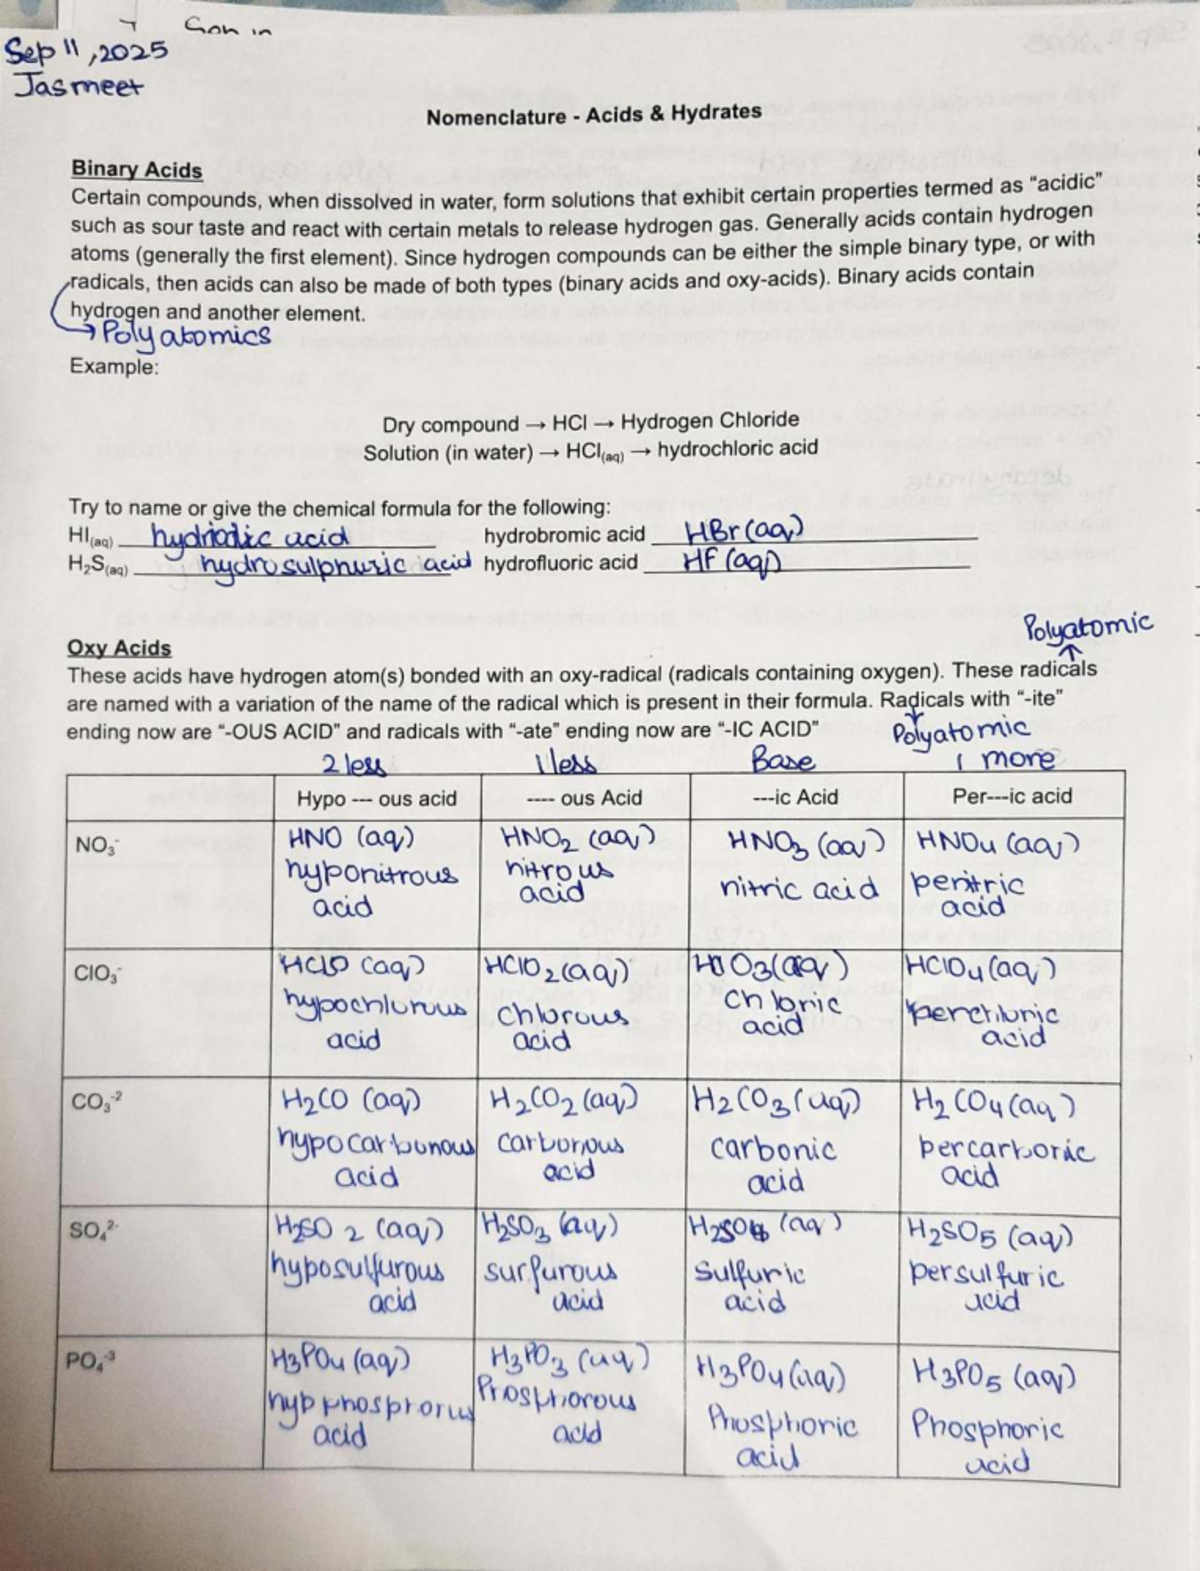 Son in
Sep 11, 2025
Jasmeet
Nomenclature - Acids & Hydrates
Binary Acids
Certain compounds, when dissolved in water, form solutions that exhibit certain properties termed as “acidic”
such as sour taste and react with certain metals to release hydrogen gas. Generally acids contain hydrogen
atoms (generally the first element). Since hydrogen compounds can be either the simple binary type, or with
radicals, then acids can also be made of both types (binary acids and oxy-acids). Binary acids contain
hydrogen and another element.
→ Polyatomics
Example:
Dry compound → HCl → Hydrogen Chloride
Solution (in water) → HCl(aq) → hydrochloric acid
Try to name or give the chemical formula for the following:
HI(aq) hydriodic acid hydrobromic acid HBr (aq)
H₂S(aq) hydrosulphuric acid hydrofluoric acid HF (aq)
Polyatomic
Oxy Acids
These acids have hydrogen atom(s) bonded with an oxy-radical (radicals containing oxygen). These radicals
are named with a variation of the name of the radical which is present in their formula. Radicals with “-ite”
ending now are “-OUS ACID” and radicals with “-ate” ending now are “-IC ACID”
Polyatomic
2 less 1 less Base 1 more
Hypo --- ous acid ---- ous Acid ---ic Acid Per---ic acid
NO₃⁻ HNO (aq) HNO₂ (aq) HNO₃ (aq) HNO₄ (aq)
hyponitrous nitrous nitric acid pernitric
acid acid acid
ClO₃⁻ HClO (aq) HClO₂ (aq) HClO₃ (aq) HClO₄ (aq)
hypochlorous chlorous chloric perchloric
acid acid acid acid
CO₃⁻² H₂CO (aq) H₂CO₂ (aq) H₂CO₃ (aq) H₂CO₄ (aq)
hypocarbonous carbonous carbonic percarbonic
acid acid acid acid
SO₄²⁻ H₂SO₂ (aq) H₂SO₃ (aq) H₂SO₄ (aq) H₂SO₅ (aq)
hyposulfurous surfurous Sulfuric persulfuric
acid acid acid acid
PO₄⁻³ H₃PO₄ (aq) H₃PO₃ (aq) H₃PO₄ (aq) H₃PO₅ (aq)
Phosphorous Phosphoric Phosphoric
acid acid acid acid